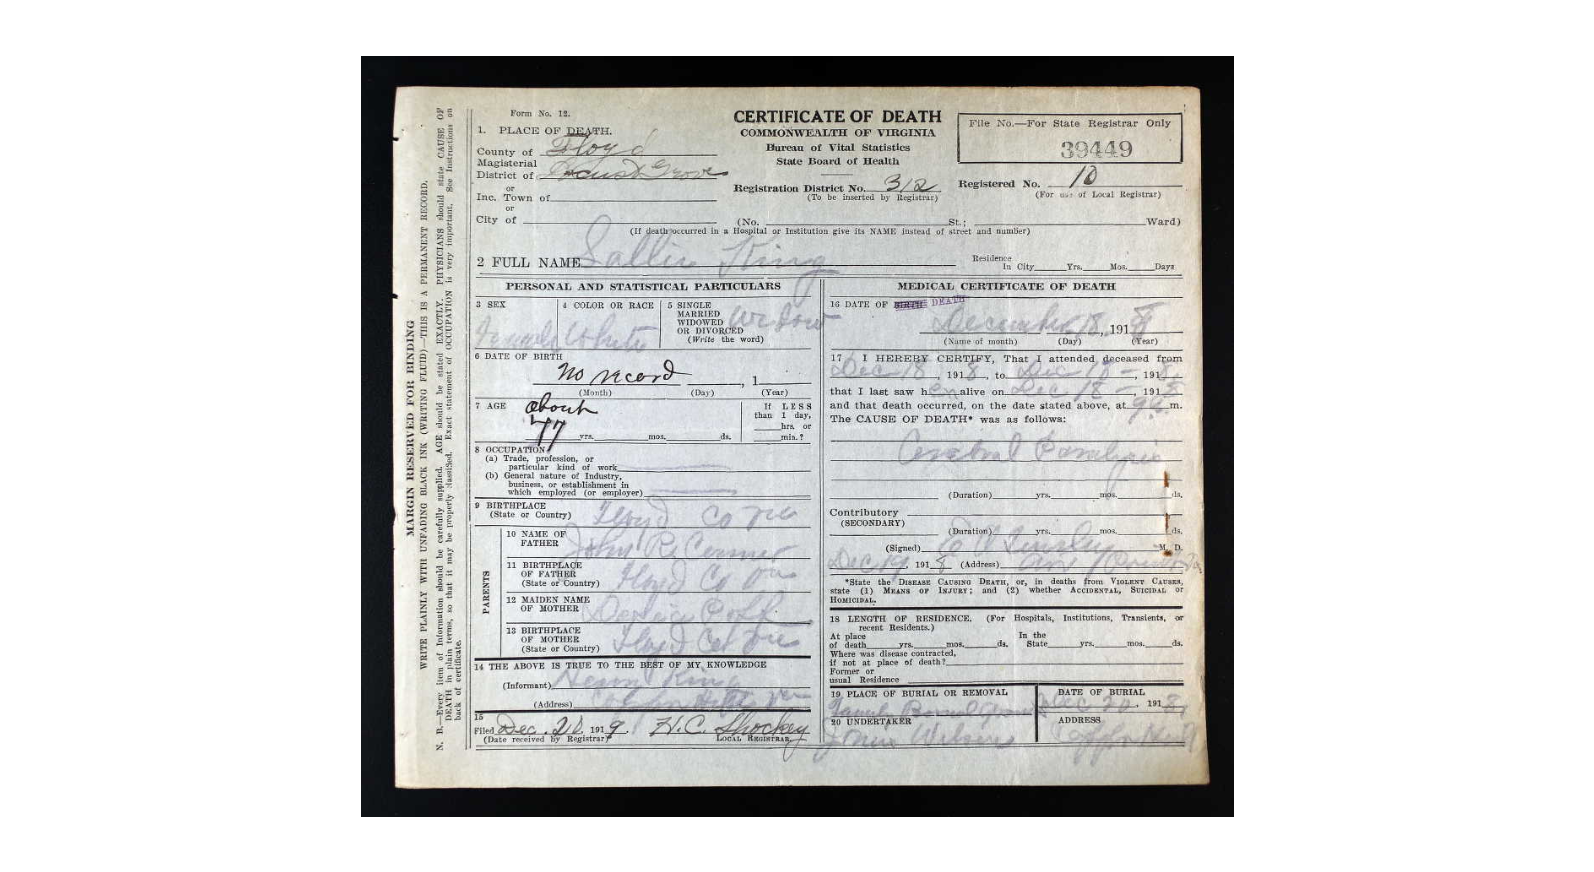 Form No. 12.
1. PLACE OF DEATH.
County of Floyd
Magisterial
District of Locust Grove
or
Inc. Town of
or
City of
CERTIFICATE OF DEATH
COMMONWEALTH OF VIRGINIA
Bureau of Vital Statistics
State Board of Health
Registration District No. 312
(To be inserted by Registrar)
File No.—For State Registrar Only
39449
Registered No. 10
(For use of Local Registrar)
(No. St.; Ward)
(If death occurred in a Hospital or Institution give its NAME instead of street and number)
2 FULL NAME Sallie King
Residence
In City Yrs. Mos. Days
PERSONAL AND STATISTICAL PARTICULARS
3 SEX
Female
4 COLOR OR RACE
White
5 SINGLE
MARRIED
WIDOWED
OR DIVORCED
(Write the word)
Widow
6 DATE OF BIRTH
No record , 1
(Month) (Day) (Year)
7 AGE
about
77 yrs. mos. ds.
If LESS
than 1 day,
hrs. or
min.?
8 OCCUPATION
(a) Trade, profession, or
particular kind of work
(b) General nature of Industry,
business, or establishment in
which employed (or employer)
9 BIRTHPLACE
(State or Country) Floyd Co
PARENTS
10 NAME OF
FATHER
John R.
11 BIRTHPLACE
OF FATHER
(State or Country) Floyd Co Va
12 MAIDEN NAME
OF MOTHER
13 BIRTHPLACE
OF MOTHER
(State or Country) Floyd
14 THE ABOVE IS TRUE TO THE BEST OF MY KNOWLEDGE
(Informant) King
(Address)
15
Filed Dec. 20 1919. H.C. Shockey
(Date received by Registrar) LOCAL REGISTRAR.
MEDICAL CERTIFICATE OF DEATH
16 DATE OF BIRTH DEATH
December 18, 1918
(Name of month) (Day) (Year)
17 I HEREBY CERTIFY, That I attended deceased from
Dec 18, 1918, to Dec 18, 1918,
that I last saw her alive on Dec 18, 1918
and that death occurred, on the date stated above, at m.
The CAUSE OF DEATH* was as follows:
Cerebral Paralysis
(Duration) yrs. mos. ds.
Contributory
(SECONDARY)
(Duration) yrs. mos. ds.
(Signed) M. D.
Dec 19, 1918 (Address)
*State the DISEASE CAUSING DEATH, or, in deaths from VIOLENT CAUSES,
state (1) MEANS OF INJURY; and (2) whether ACCIDENTAL, SUICIDAL or
HOMICIDAL.
18 LENGTH OF RESIDENCE. (For Hospitals, Institutions, Transients, or
recent Residents.)
At place
of death yrs. mos. ds.
In the
State yrs. mos. ds.
Where was disease contracted,
if not at place of death?
Former or
usual Residence
19 PLACE OF BURIAL OR REMOVAL
Family
DATE OF BURIAL
Dec 20, 1918
20 UNDERTAKER
ADDRESS
MARGIN RESERVED FOR BINDING
WRITE PLAINLY WITH UNFADING BLACK INK (WRITING FLUID)—THIS IS A PERMANENT RECORD.
N. B.—Every item of Information should be carefully supplied. AGE should be stated EXACTLY. PHYSICIANS should state CAUSE OF
DEATH in plain terms, so that it may be properly classified. Exact statement of OCCUPATION is very important. See Instructions on
back of certificate.